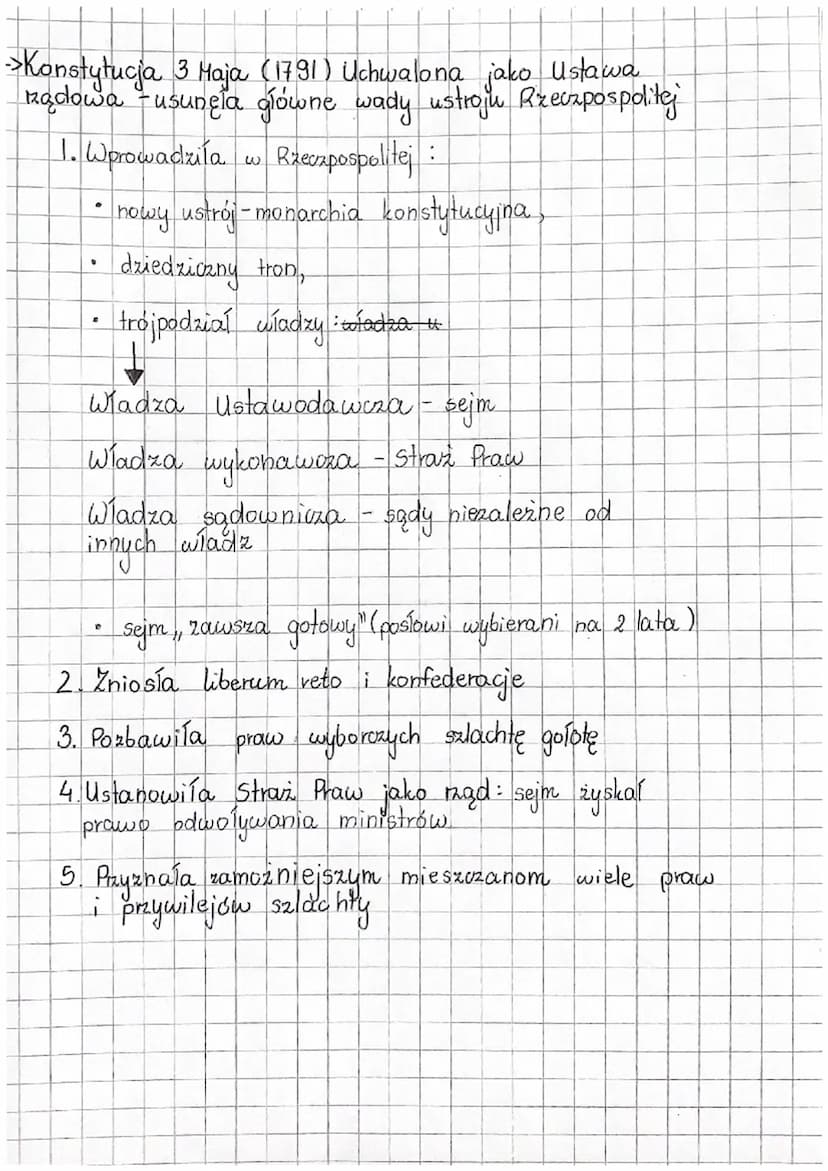 ->Konstytucja 3 Maja (1791) Uchwalona jako Ustawa
rządowa - usunęła główne wady ustroju Rzeczpospolitej
1. Wprowadziła w Rzeczpospolitej :
• nowy ustrój - monarchia konstytucyjna,
• dziedziczny tron,
• trójpodział władzy : władza u
Władza Ustawodawcza - sejm
Władza wykonawcza - Straż Praw
Władza sądownicza - sądy niezależne od
innych władz
• sejm „zawsza gotowy" (posłowi wybierani na 2 lata)
2. Zniosła liberum veto i konfederacje
3. Pozbawiła praw wyborczych szlachtę gołotę
4. Ustanowiła Straż Praw jako rząd: sejm zyskał
prawo odwoływania ministrów
5. Przyznała zamożniejszym mieszczanom wiele praw
i przywilejów szlachty